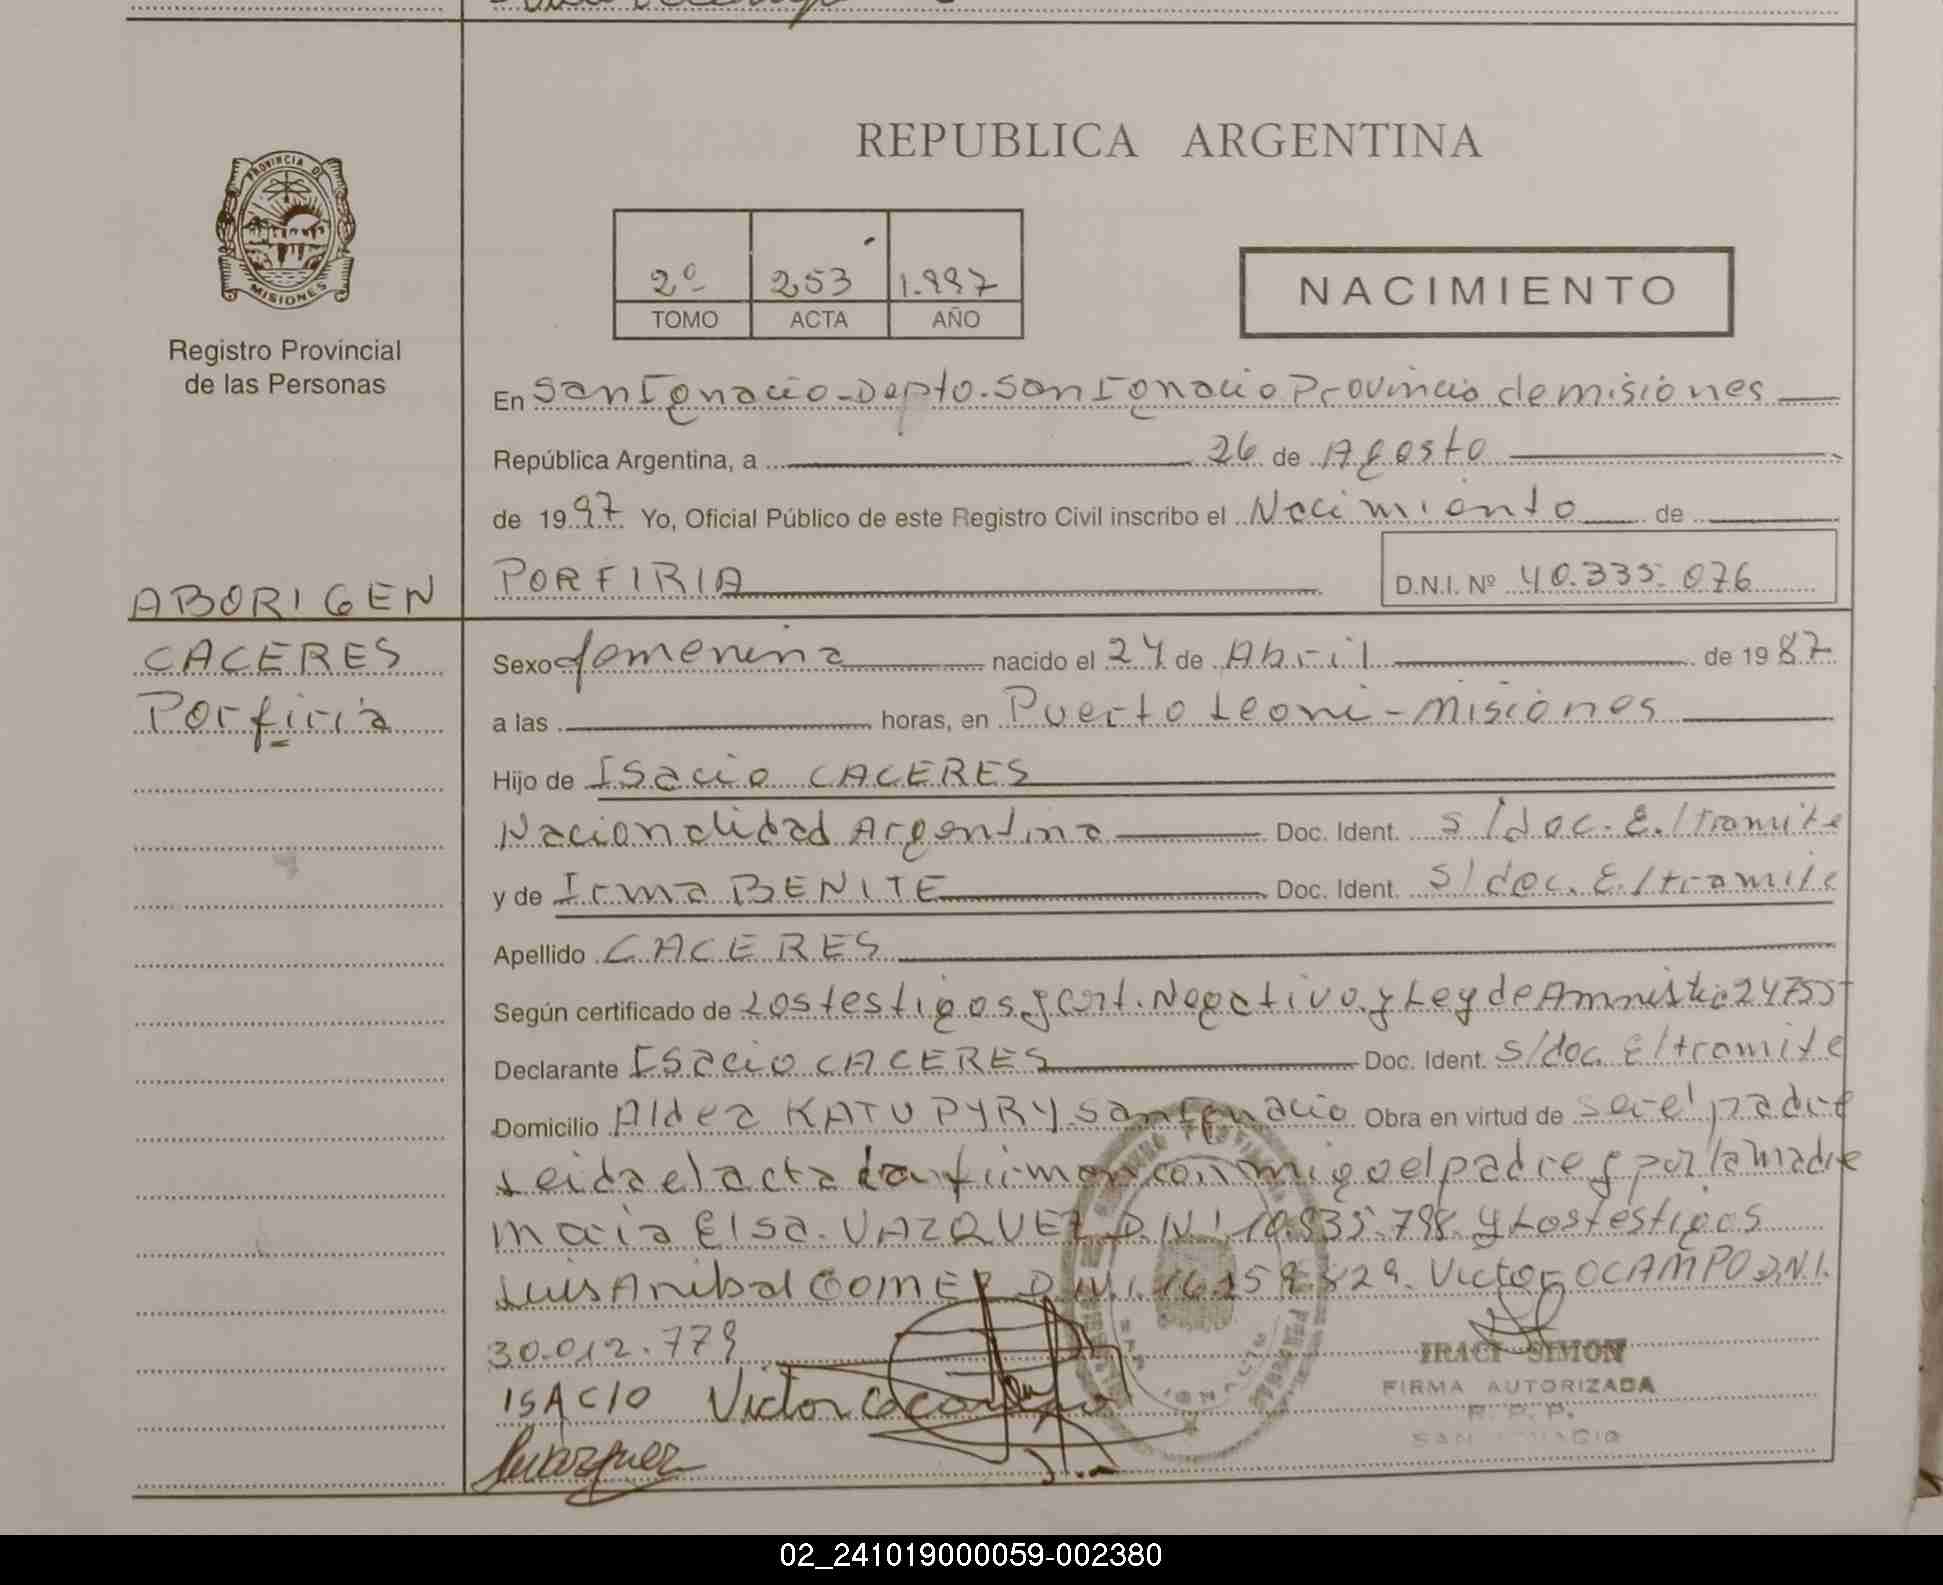 REPUBLICA ARGENTINA
PROVINCIA DE
MISIONES
Registro Provincial
de las Personas
2º 253 1.997
TOMO ACTA AÑO
NACIMIENTO
En San Ignacio - Depto. San Ignacio Provincia de misiones
República Argentina, a 26 de Agosto
de 1997 Yo, Oficial Público de este Registro Civil inscribo el Nacimiento de
PORFIRIA D.N.I. Nº 40.335.076
ABORIGEN
CACERES
Porfiria
Sexo femenina nacido el 24 de Abril de 1987
a las horas, en Puerto Leoni - Misiones
Hijo de Isacio CACERES
Nacionalidad Argentina Doc. Ident. s/doc. E./tramite
y de Irma BENITE Doc. Ident. s/doc. E./tramite
Apellido CACERES
Según certificado de Los testigos y cert. Negativo y Ley de Amnistia 24755
Declarante Isacio CACERES Doc. Ident. s/doc. E/tramite
Domicilio Aldea KATU PYRY. San Ignacio Obra en virtud de ser el padre
Leida el acta firman conmigo el padre y por la madre
Maria Elsa VAZQUEZ D.N.I 10.935.798 y Los testigos
Luis Anibal GOMEZ D.N.I. 16.159.829. Victor OCAMPO D.N.I.
30.012.779
IRACI SIMON
FIRMA AUTORIZADA
R. P. P.
SAN IGNACIO
ISACIO Victor Ocampo
Mvazquez
02_241019000059-002380